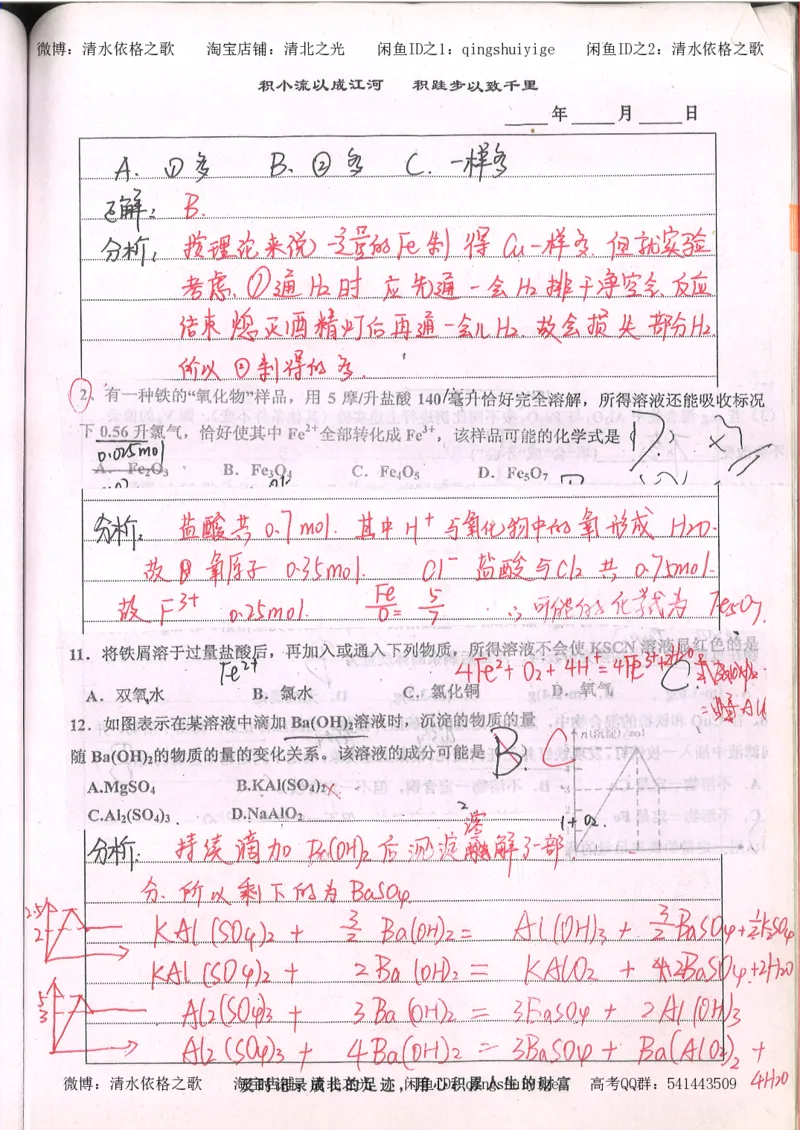 微博：清水依格之歌 淘宝店铺：清北之光 闲鱼ID之1：qingshuiyige 闲鱼ID之2：清水依格之歌
积小流以成江河 积跬步以致千里
年 月 日
A. ①多 B. ②多 C. 一样多
正解：B.
分析：按理论来说，一定量的Fe制得Cu一样多. 但就实验
考虑. ①通H2时应先通一会H2排干净空气. 反应
结束熄灭酒精灯后再通一会儿H2. 故会损失部分H2.
所以②制得的多.
2、有一种铁的“氧化物”样品，用 5 摩/升盐酸 140 毫升恰好完全溶解，所得溶液还能吸收标况
下 0.56 升氯气，恰好使其中 Fe²⁺全部转化成 Fe³⁺，该样品可能的化学式是（D）
0.025mol
A. Fe₂O₃ B. Fe₃O₄ C. Fe₄O₅ D. Fe₅O₇
分析：盐酸共0.7mol. 其中H⁺与氧化物中的氧形成H2O.
故 氧原子0.35mol. Cl⁻ 盐酸与Cl2共0.75mol.
故F³⁺ 0.25mol. Fe/O = 5/7 ∴可能的化学式为Fe5O7.
11. 将铁屑溶于过量盐酸后，再加入或通入下列物质，所得溶液不会使 KSCN 溶液显红色的是
Fe²⁺ 4Fe²⁺+O2+4H⁺=4Fe³⁺+2H2O C
A. 双氧水 B. 氯水 C. 氯化铜 D. 氧气
12. 如图表示在某溶液中滴加 Ba(OH)₂溶液时，沉淀的物质的量
随 Ba(OH)₂的物质的量的变化关系，该溶液的成分可能是 B. C
n(沉淀)/mol
A.MgSO₄ B.KAl(SO₄)₂
C.Al₂(SO₄)₃ D.NaAlO₂
2
1
分析：持续滴加Ba(OH)2后沉淀溶解了一部
分. 所以剩下的为BaSO4.
2.5
2
KAl(SO4)2 + 3/2 Ba(OH)2 = Al(OH)3 + 3/2 BaSO4 + 1/2 K2SO4
KAl(SO4)2 + 2Ba(OH)2 = KAlO2 + 2BaSO4 + 2H2O
5
3
Al2(SO4)3 + 3Ba(OH)2 = 3BaSO4 + 2Al(OH)3
Al2(SO4)3 + 4Ba(OH)2 = 3BaSO4 + Ba(AlO2)2 +
4H2O
微博：清水依格之歌 淘宝店铺：清北之光 闲鱼ID之1：qingshuiyige 高考QQ群：541443509
及时记录成长的足迹，用心积累人生的财富